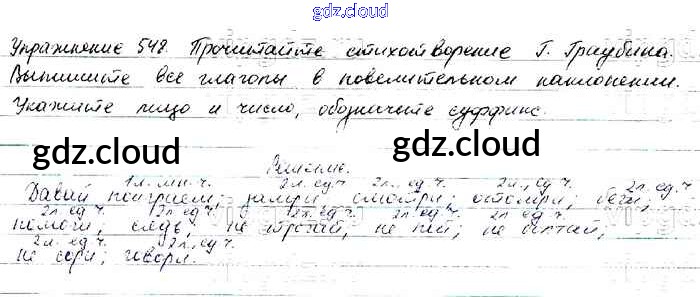 gdz.cloud
Упражнение 548. Прочитайте стихотворение Г. Граубина.
Выпишите все глаголы в повелительном наклонении.
Укажите лицо и число, обозначьте суффикс.
gdz.cloud gdz.cloud
Решение.
1л. мн. ч. 2л. ед ч. 2л. ед. ч. 2л., ед ч. 2л. ед. ч.
Давай поиграем; замри; смотри; беги;
2л ед ч. 2л ед. ч. 2л. ед. ч. 2л. ед. ч. 2л ед ч.
помоги; следы не трогай, не пей; не болтай;
2л. ед. ч. 2л. ед. ч.
не сори; говори.